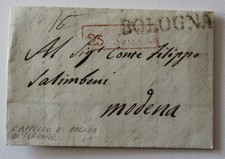 16
BOLOGNA
23
Al Sig.r Conte Filippo
Salimbeni
Modena
CAPPELLO DI PAGLIA
DI FIRENZE